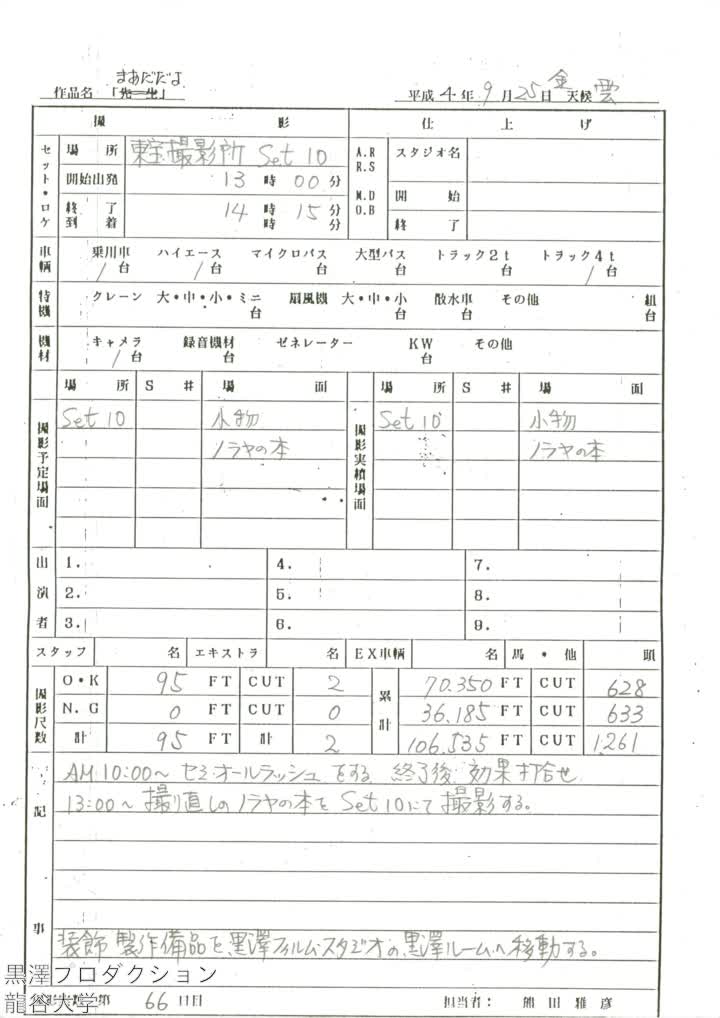 まあだだよ
作品名 「先生」 平成 4 年 9 月 25 日 金 天候 雲
撮 影 仕 上 げ
セット・ロケ 場 所 東宝撮影所 Set 10 A.R R.S スタジオ名
開始出発 13 時 00 分 M.D O.B 開 始
終 了 14 時 15 分 終 了
到 着 時 分
車輌 乗用車 ハイエース マイクロバス 大型バス トラック2t トラック4t
1 台 1 台 台 台 台 1 台
特機 クレーン 大・中・小・ミニ 扇風機 大・中・小 散水車 その他 組
台 台 台 台
機材 キャメラ 録音機材 ゼネレーター KW その他
1 台 台 台
場 所 S # 場 面 場 所 S # 場 面
撮影予定場面 Set 10 小物 撮影実績場面 Set 10 小物
ノラヤの本 ノラヤの本
出演者 1. 4. 7.
2. 5. 8.
3. 6. 9.
スタッフ 名 エキストラ 名 EX車輌 名 馬・他 頭
撮影尺数 O・K 95 FT CUT 2 累計 70.350 FT CUT 628
N.G 0 FT CUT 0 36.185 FT CUT 633
計 95 FT 計 2 106.535 FT CUT 1261
記事 AM 10:00〜 セミ・オールラッシュをする 終了後 効果打合せ
13:00〜 撮り直しのノラヤの本を Set 10にて撮影する。
装飾 製作備品を、黒澤フィルムスタジオの、黒澤ルームへ移動する。
黒澤プロダクション
龍谷大学
第 66 日目 担当者： 熊田雅彦